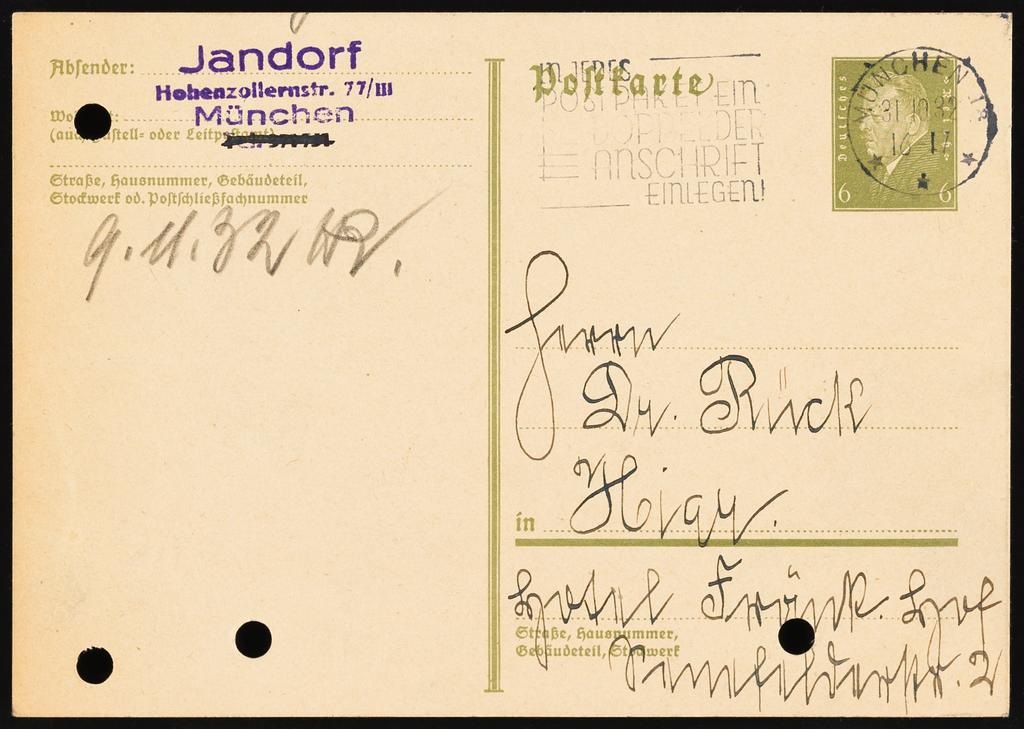 Absender:
Jandorf
Hohenzollernstr. 77/III
München
(auch Zustell- oder Leitpostamt)
Straße, Hausnummer, Gebäudeteil,
Stockwerk od. Postschließfachnummer
9.11.32
Postkarte
IN JEDES
POSTPAKET EIN
DOPPEL DER
ANSCHRIFT
EINLEGEN!
Deutsches Reich
6 6
MÜNCHEN 13
31.10.32
16-17
Herrn
Dr. Rück
in Hier.
Hotel Fränk. Hof
Straße, Hausnummer,
Gebäudeteil, Stockwerk
Senefelderstr. 2